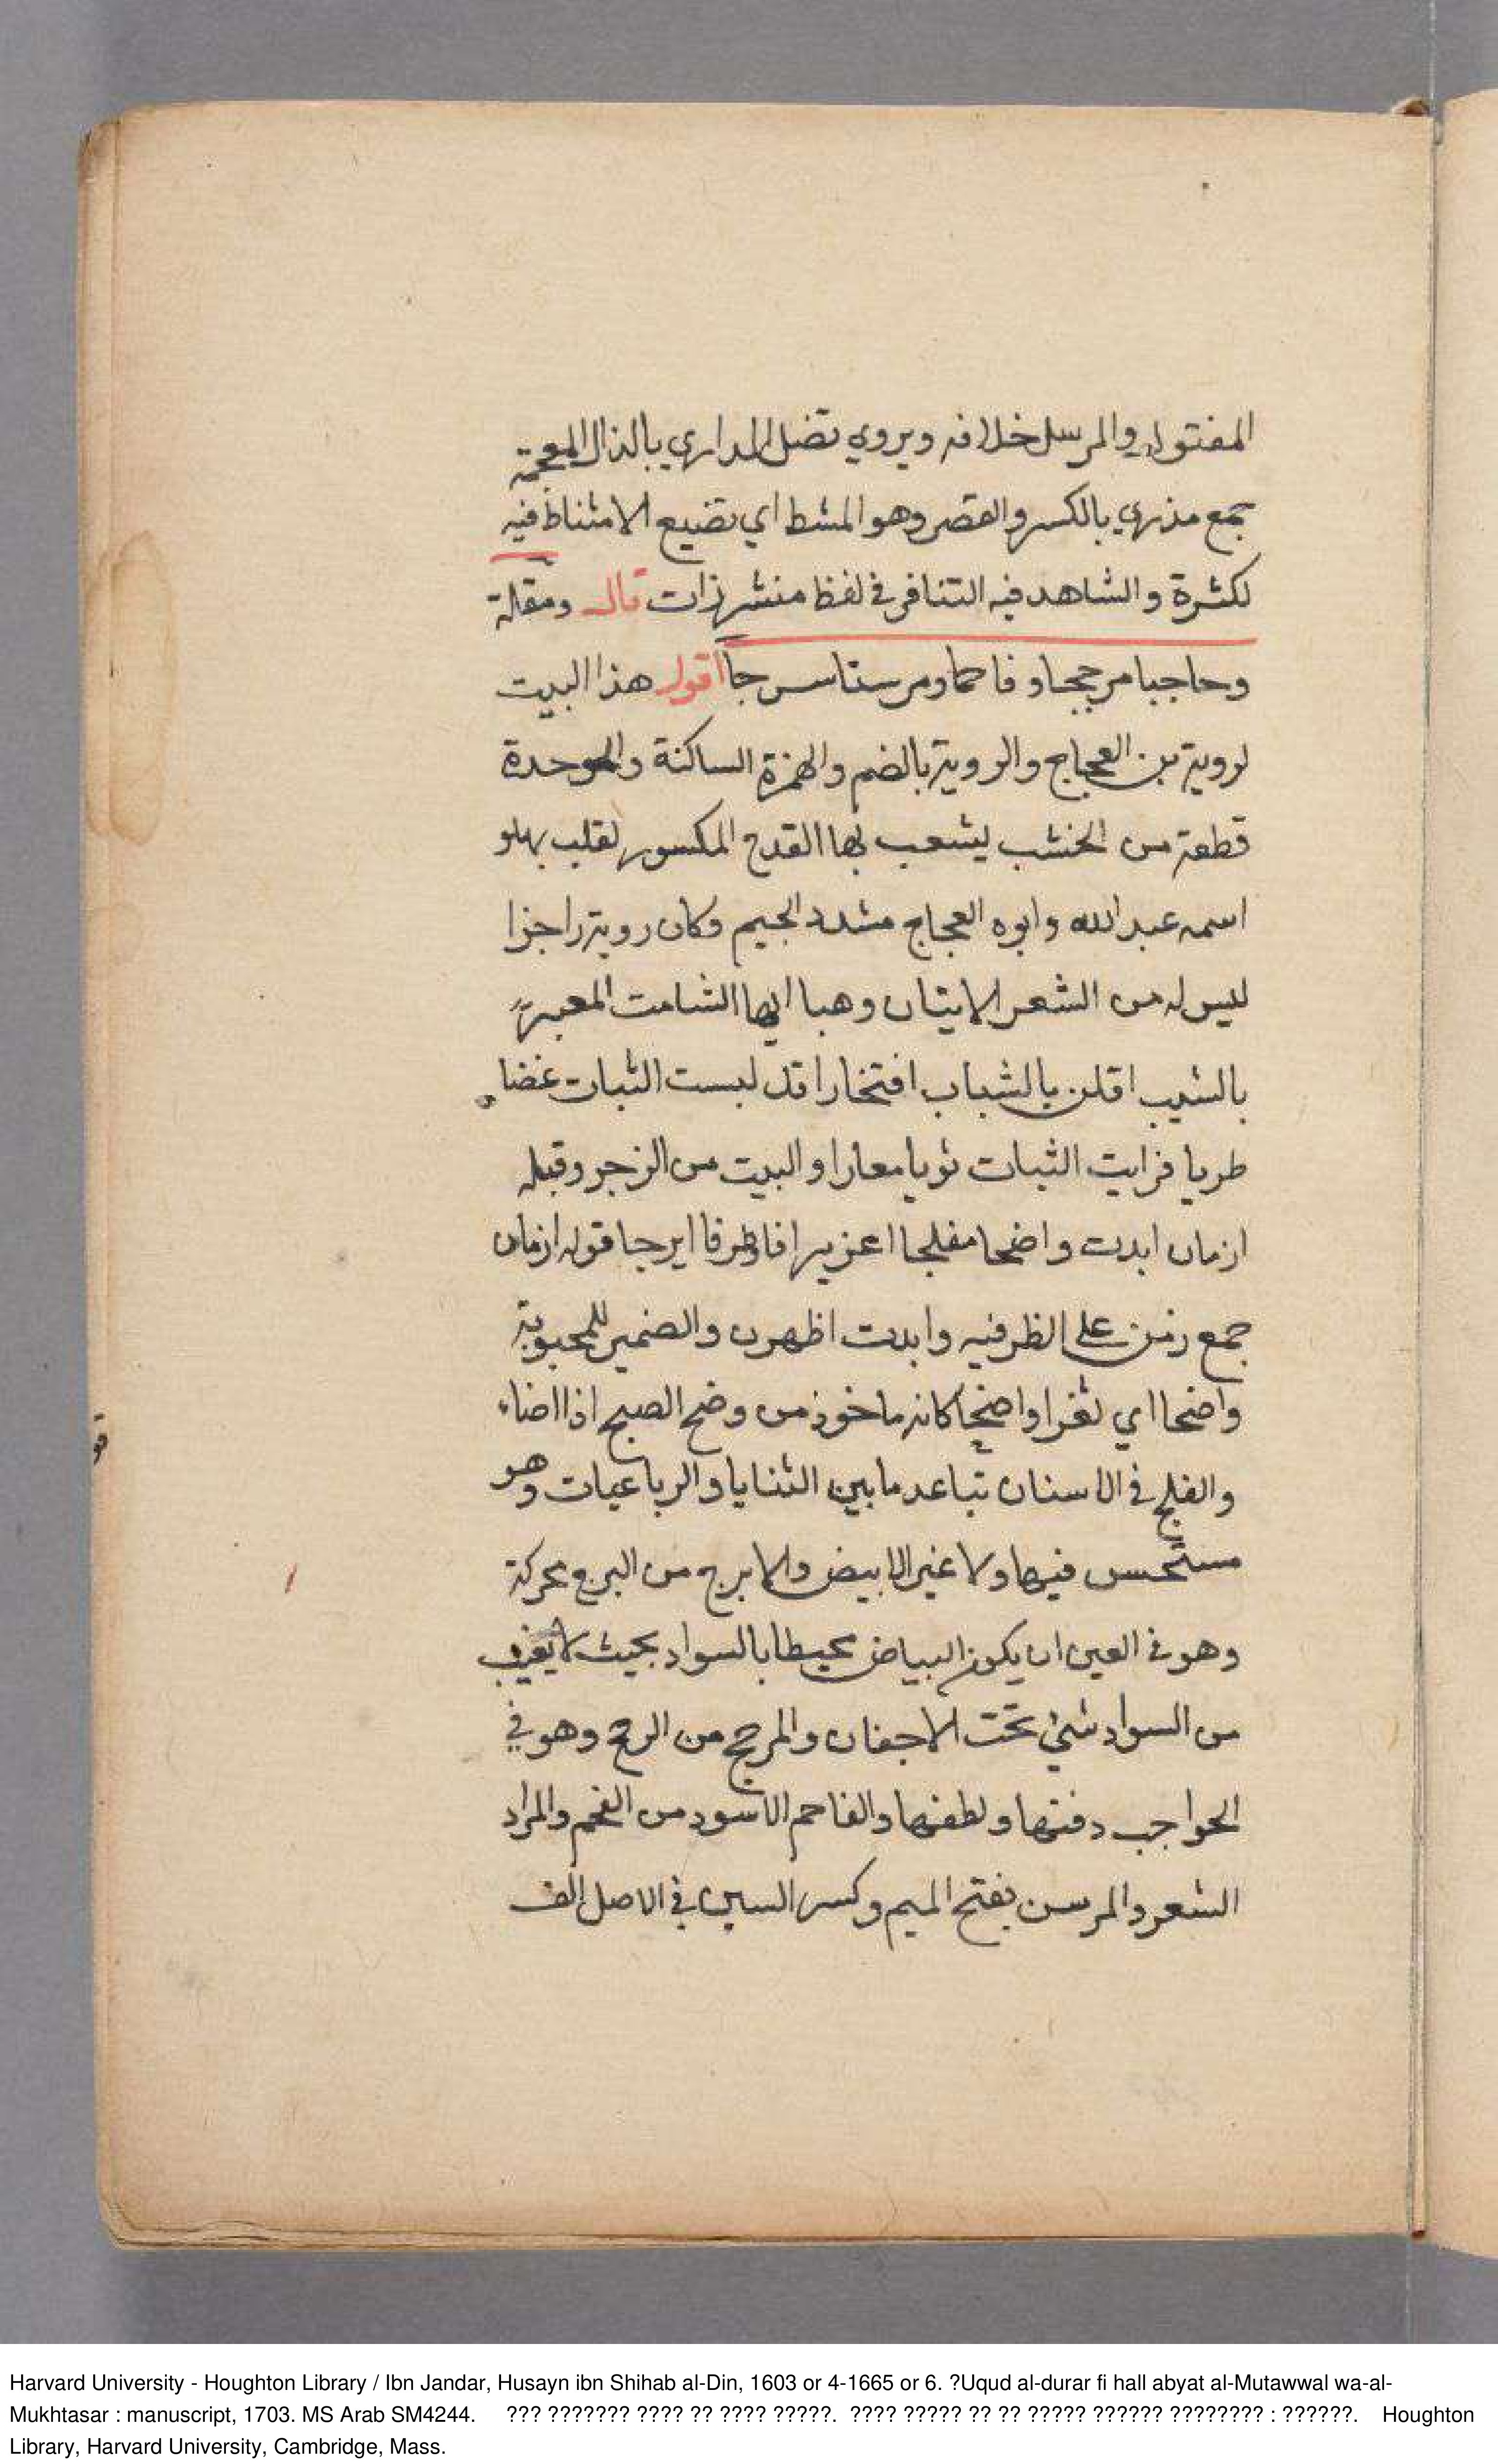 المفتول والمرسل خلافه ويروي تضل المداري بالذال المعجمة
جمع مذري بالكسر والقصر وهو المشط اي تضيع الامشاط فيه
لكثرة والشاهد فيه التنافر في لفظ مستشزرات قال ومقلة
وحاجبا مزججا وفاحما ومرسنا مسرجا اقول هذا البيت
لروبة بن العجاج والروبة بالضم والهمزة الساكنة والموحدة
قطعة من الخشب يشعب بها القدح المكسور لقلب بهلو
اسمه عبد الله وابوه العجاج مشدد الجيم وكان روبة راجزا
ليس له من الشعر الا بيتان وهبا ايها الشامت المعير
بالشيب اقلن بالشباب افتخارا قد لبست الثبات غضا
طريا فرايت الثبات ثوبا معارا والبيت من الرجز وقبله
ازمان ابدت واضحا مفلجا اغر براقا وطرفا ابرجا قوله ازمان
جمع زمن على الظرفيه وابدت اظهرت والضمير للمحبوبة
واضحا اي ثغرا واضحا كانه ماخوذ من وضح الصبح اذا اضاء
والفلج في الاسنان تباعد ما بين الثنايا والرباعيات وهو
مستحسن فيها ولا غير الابيض والابرج من البرج محركة
وهو في العين ان يكون البياض محيطا بالسواد بحيث لا يغيب
من السواد شئ تحت الاجفان والمزجج من الزجج وهو في
الحواجب دقتها ولطفها والفاحم الاسود من الفحم والمراد
الشعر والمرسن بفتح الميم وكسر السين في الاصل الف
قو
Harvard University - Houghton Library / Ibn Jandar, Husayn ibn Shihab al-Din, 1603 or 4-1665 or 6. ?Uqud al-durar fi hall abyat al-Mutawwal wa-al-
Mukhtasar : manuscript, 1703. MS Arab SM4244. ??? ??????? ???? ?? ???? ?????. ???? ????? ?? ?? ????? ?????? ???????? : ??????. Houghton
Library, Harvard University, Cambridge, Mass.